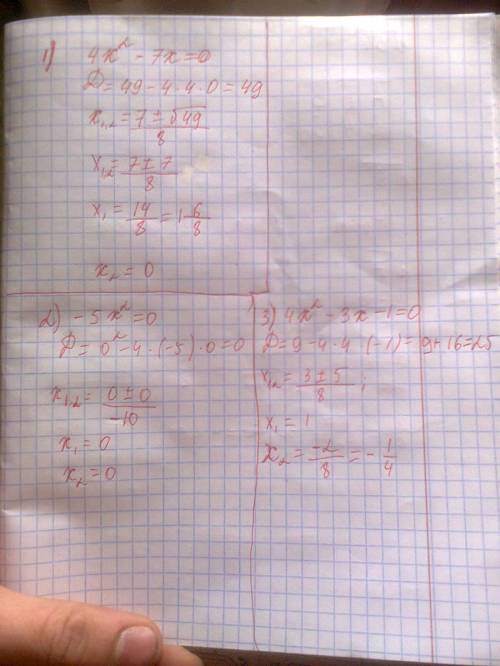 1) 4x² - 7x = 0
D = 49 - 4 · 4 · 0 = 49
x₁,₂ = (7 ± √49)/8
x₁,₂ = (7 ± 7)/8
x₁ = 14/8 = 1 6/8
x₂ = 0
2) -5x² = 0
D = 0² - 4 · (-5) · 0 = 0
x₁,₂ = (0 ± 0)/-10
x₁ = 0
x₂ = 0
3) 4x² - 3x - 1 = 0
D = 9 - 4 · 4 (-1) = 9 + 16 = 25
x₁,₂ = (3 ± 5)/8 ;
x₁ = 1
x₂ = -2/8 = - 1/4